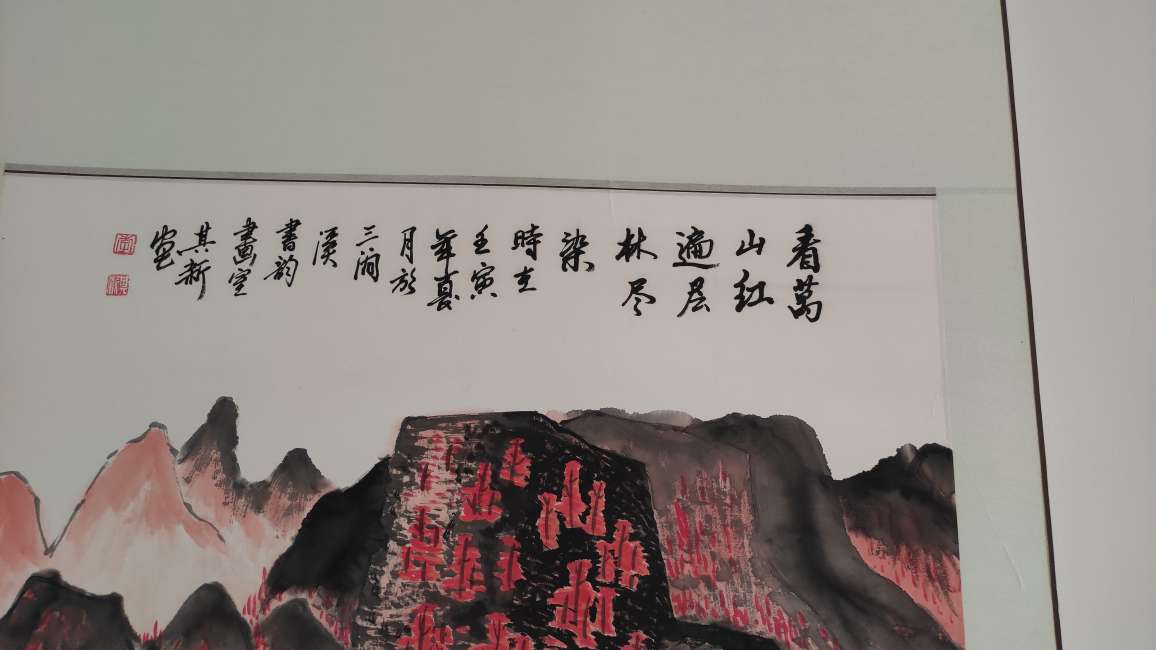 看萬
山红
遍层
林尽
染
時在
壬寅
年夏
月於
三润
溪
書韵
畫室
其新
畫